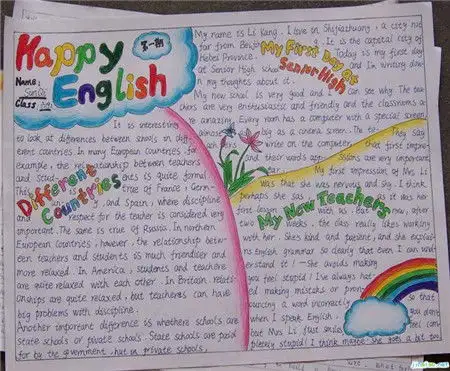 Happy English
第一期
Name:
Class
My First Day at Senior High
My name is Li Kang. I live in Shijiazhuang, a city not
far from It is the capital city of
Hebei Province. Today is my first day
at Senior High school and I'm writing down
my thoughts about it.
My new school is very good and I can see why. The tea
chers are very enthusiastic and friendly and the classrooms a
re amazing. Every room has a computer with a special screen,
big as a cinema screen. The
write on the computer
and their words
Different Countries
It is interesting
to look at differences between schools in diff
erent countries. In many European countries for
example, the relationship between teachers
and is quite formal.
true of France, Germ
and Spain, where discipline
and respect for the teacher is considered very
important. The same is true of Russia. In northern
European countries, however, the relationship betw
een teachers and students is much friendlier and
more relaxed. In America, students and teachers
are quite relaxed with each other. In Britain, relati
onships are quite relaxed, but teachers can have
big problems with discipline.
Another important difference is whethere schools are
state schools or private schools. State schools are paid
for by the government, but in private schools,
My New Teachers
They say
that first impre
ssions are very important.
My first impression of Mrs Li
was that she was nervous and shy. I think
perhaps she was, as it was her
first lesson with us. But now, after
two weeks, the class really likes working
with her. She's kind and patient, and she explai
ns English grammar so clearly that even I can
understand it - She avoids making
you feel stupid! I've always hat
ed making mistakes or pron
ouncing a word incorrectly
when I speak English,
but Mrs Li just smiles
so that
you don't
feel com
pletely stupid! I think maybe she goes a bit too